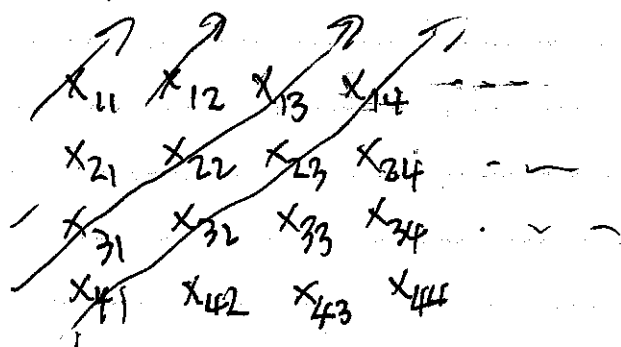 x11 x12 x13 x14 ---
x21 x22 x23 x24 - —
x31 x32 x33 x34 . - -
x41 x42 x43 x44